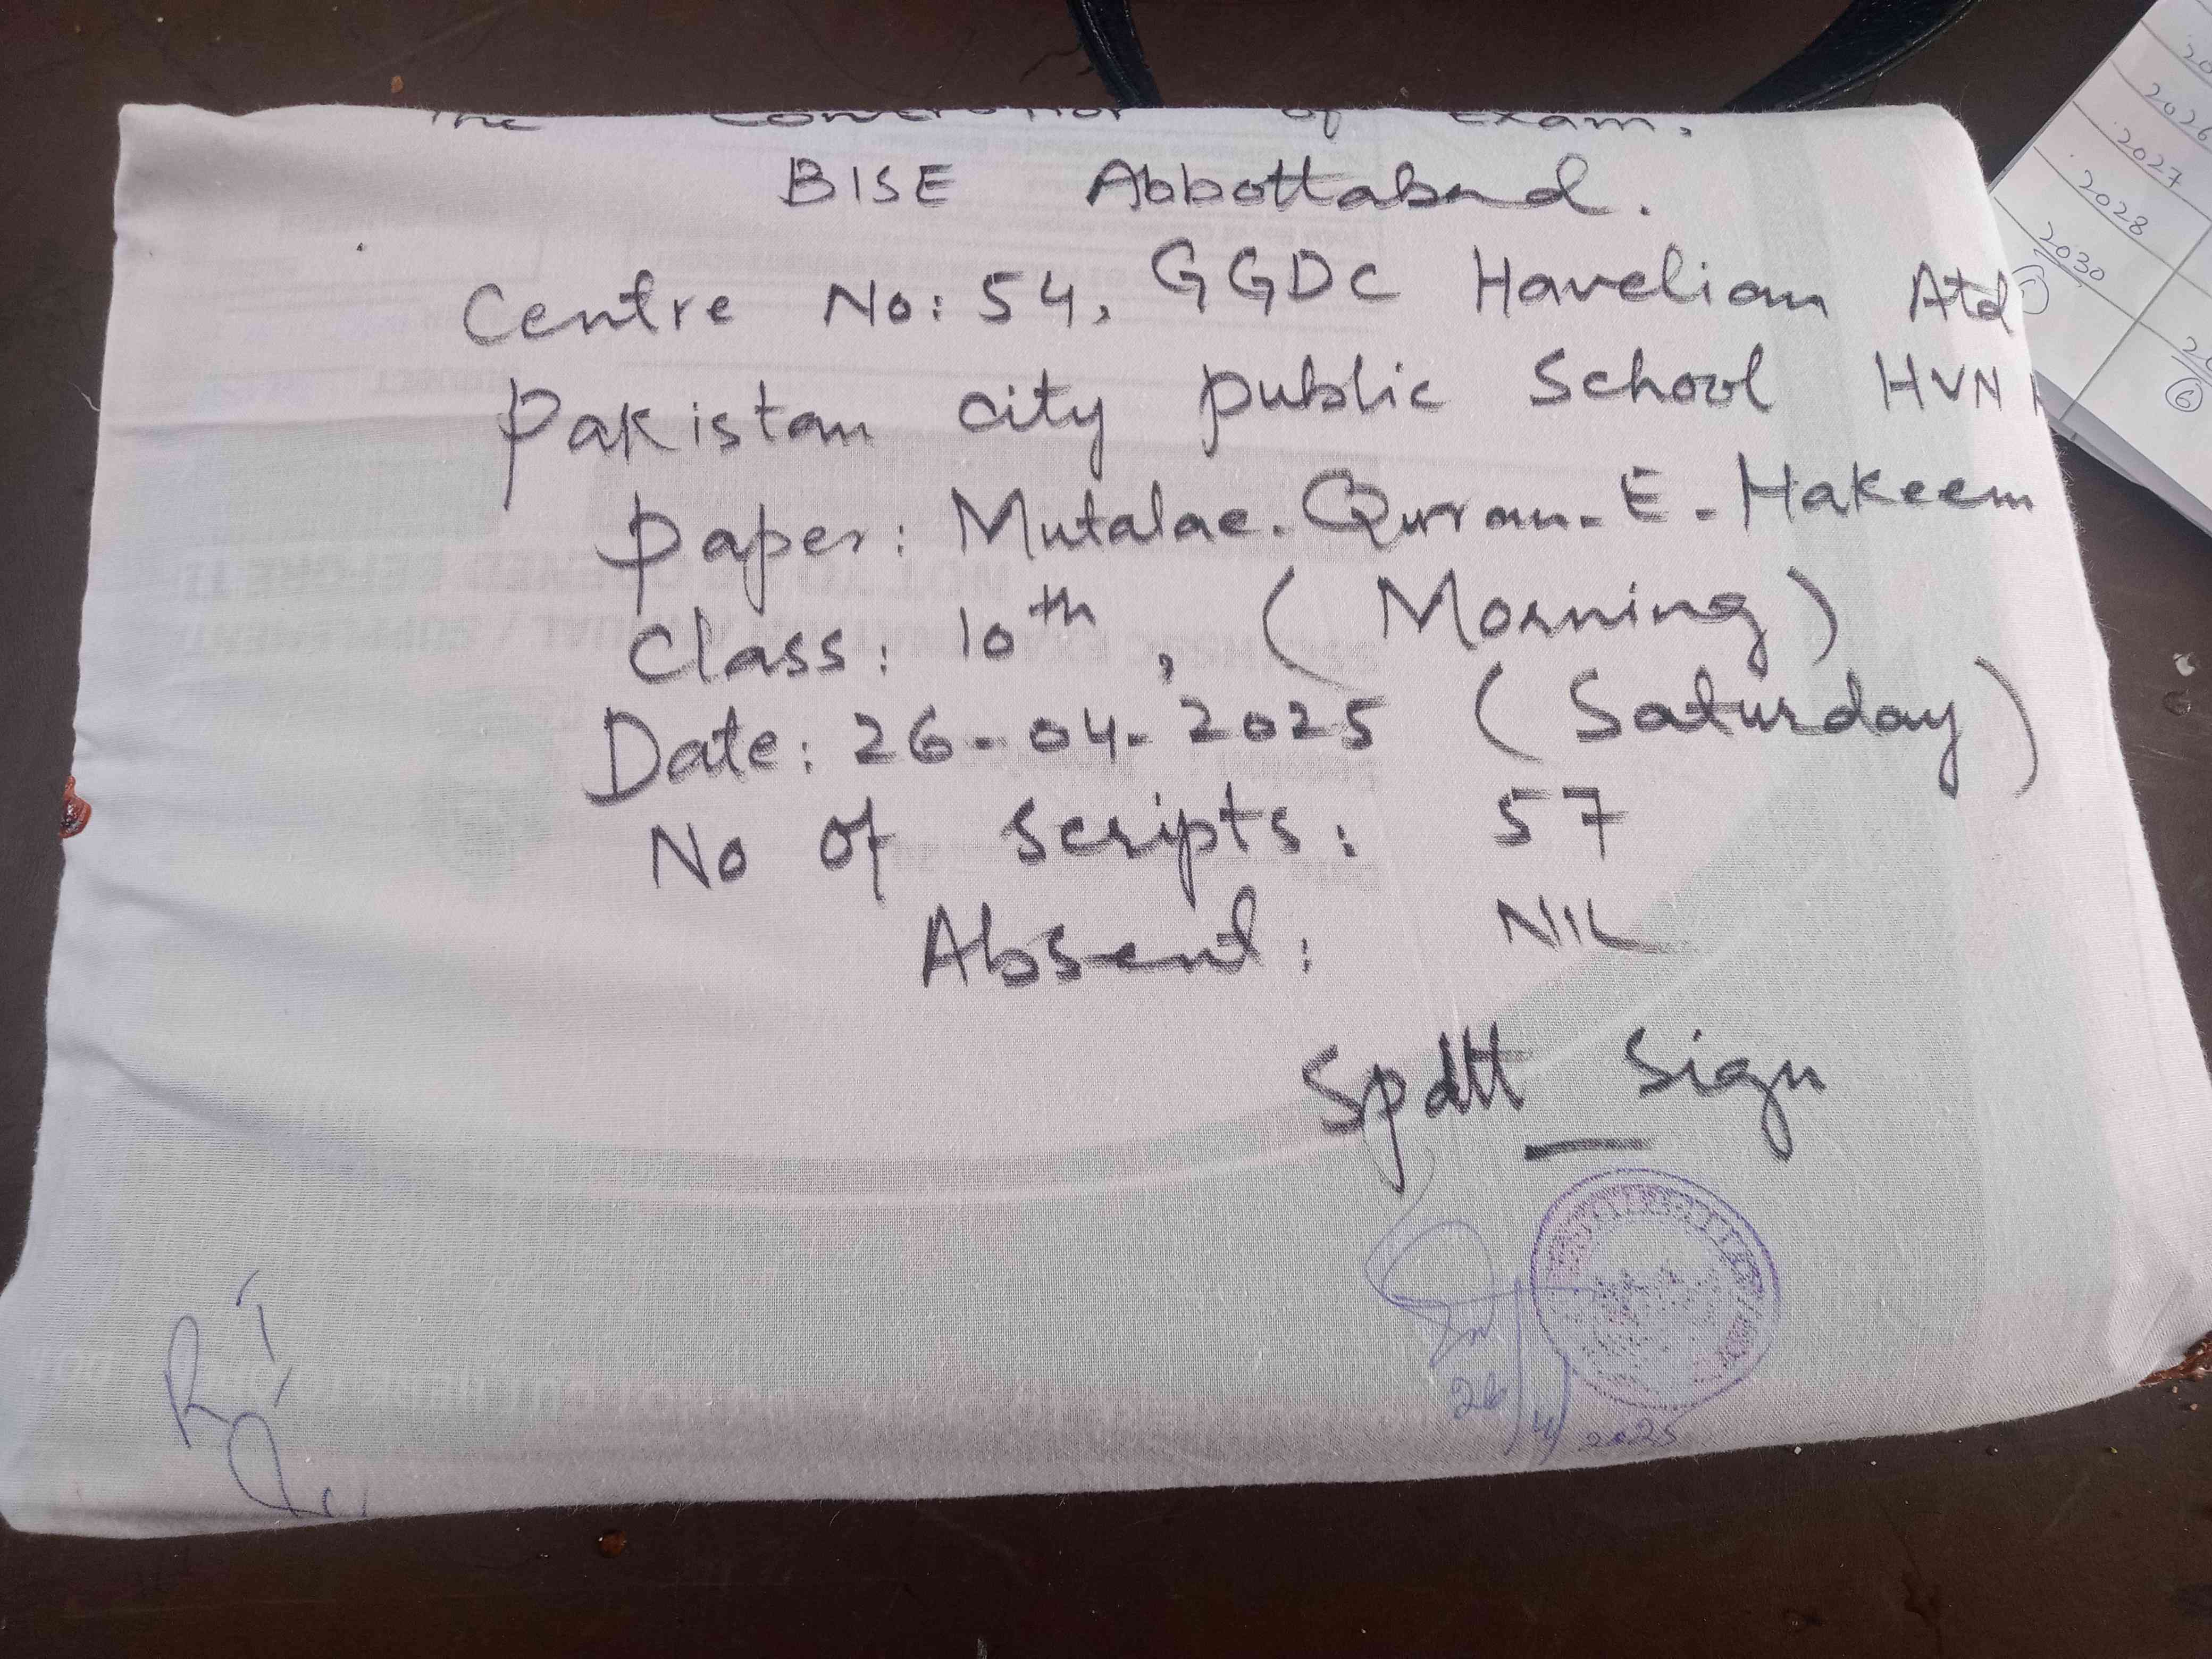 The Controller of Exam.
BISE Abbottabad.
Centre No: 54, GGDC Havelian Atd
Pakistan city public School HVN
Paper: Mutalae. Quran-E-Hakeem
Class: 10th, (Morning)
Date: 26-04-2025 (Saturday)
No of Scripts: 57
Absent: NIL
Spdtt Sign
26/4/2025
2026
2027
2028
2030
6